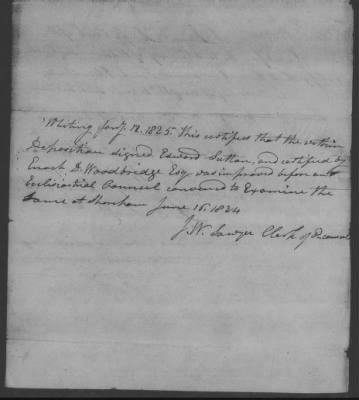 Whiting Jany. 12. 1825. This certifies that the within
Deposition signed Edward Sutton, and certified by
Enoch D. Woodbridge Esq was improved upon an
Eclisiastial Counsel convened to Examine the
Same at Shoreham June 16. 1824
J. W. Sawyer Clerk of